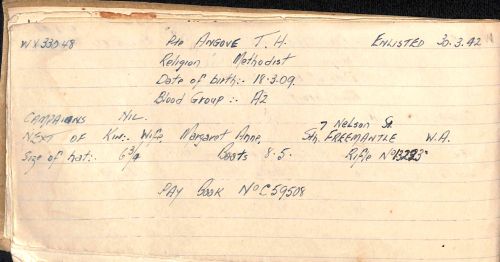 WX33048 Pte ANGOVE T. H. ENLISTED 30.3.42
Religion Methodist
Date of birth:- 18.3.09.
Blood Group :- A2
CAMPAIGNS NIL.
NEXT OF Kin:- Wife, Margaret Anne, 7 Nelson St.
Sth. FREEMANTLE W.A.
Size of hat:- 6 3/4 Boots 8.5. Rifle No
PAY Book No C59508